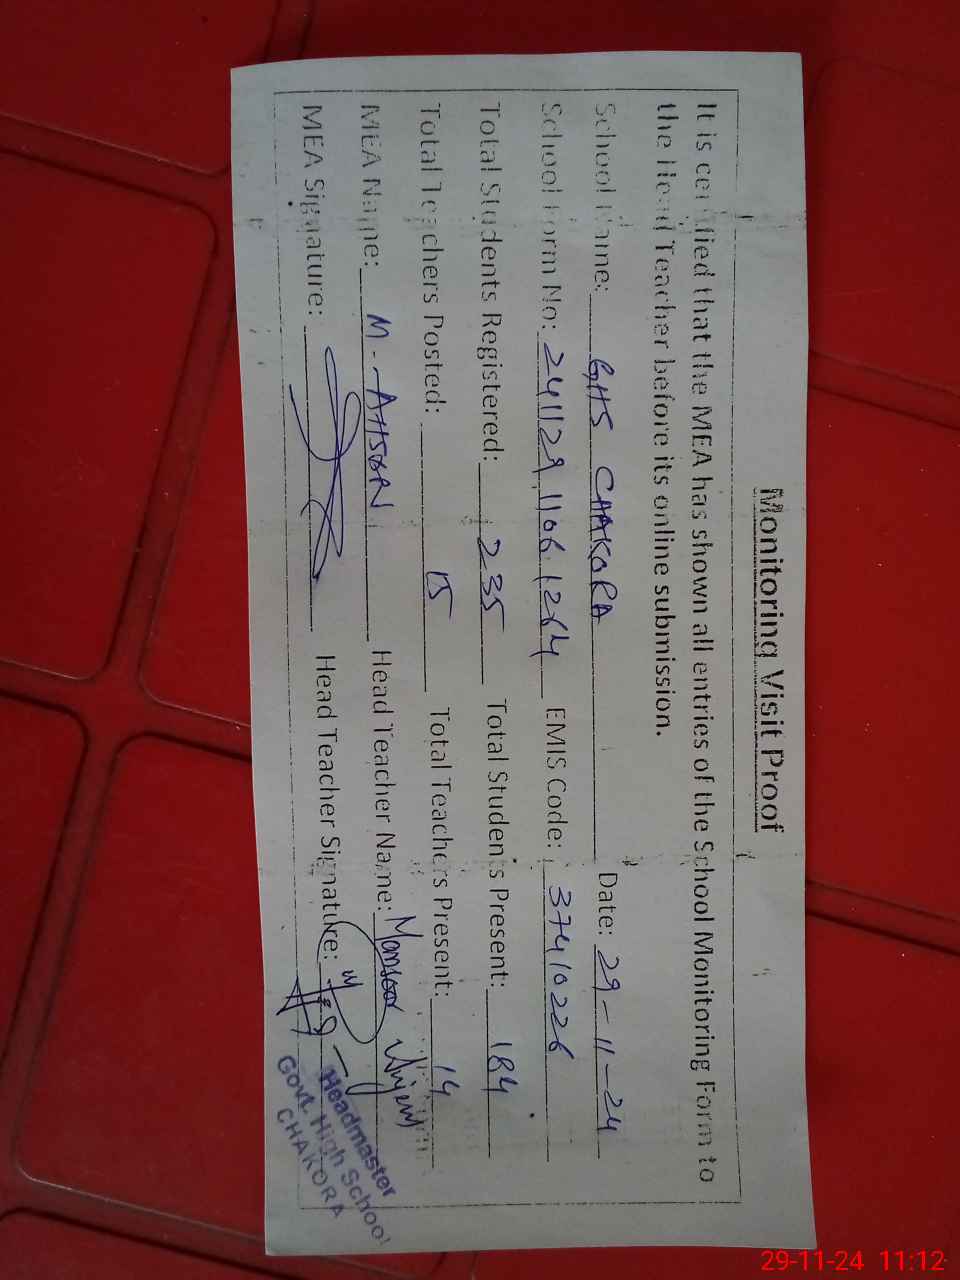 Monitoring Visit Proof
It is certified that the MEA has shown all entries of the School Monitoring Form to
the Head Teacher before its online submission.
School Name: GHS CHAKORA Date: 29-11-24
School Form No: 241129 1106 1264 EMIS Code: 37410226
Total Students Registered: 235 Total Students Present: 184
Total Teachers Posted: 15 Total Teachers Present: 14
MEA Name: M. AHSAN Head Teacher Name: Mansoor Anjum
MEA Signature: Head Teacher Signature:
Headmaster
Govt. High School
CHAKORA
29-11-24 11:12